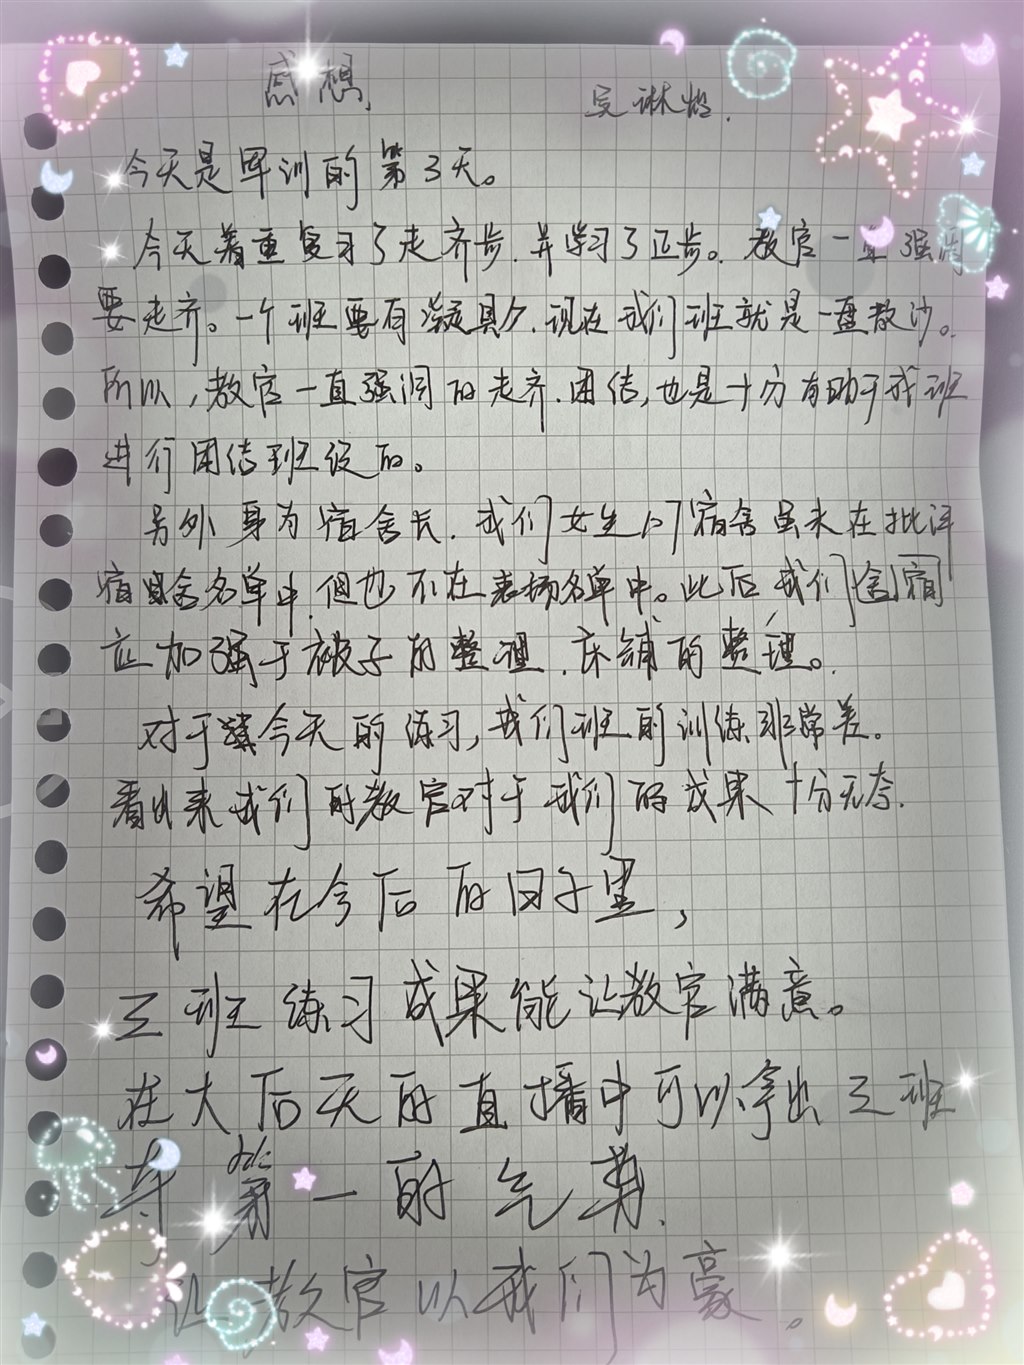 感想
吴琳
今天是军训的第3天。
今天着重复习了走齐步.并学习了正步。教官一直强调
要走齐。一个班要有凝具力.现在我们班就是一盘散沙。
所以,教官一直强调的走齐.团结,也是十分有助于我班
进行团结班设的。
另外身为宿舍长.我们女生门宿舍虽未在批评
宿舍名单中.但也不在表扬名单中。此后我们舍宿
应加强于被子的整理.床铺的整理。
对于今天的练习,我们班的训练非常差。
看出来我们的教官对于我们的成果十分无奈.
希望在今后的日子里,
三班练习成果能让教官满意。
在大后天的直播中可以拿出三班
第一的气势.
让教官以我们为豪。